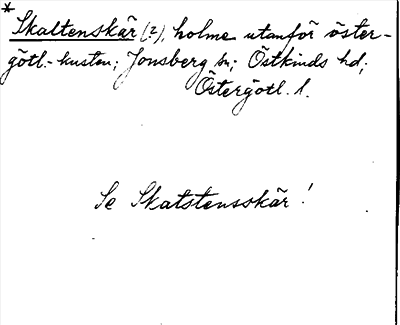 * Skaltenskär (?), holme utanför öster-
götl.-kusten; Jonsberg sn; Östkinds hd;
Östergötl. l.
Se Skatstensskär!